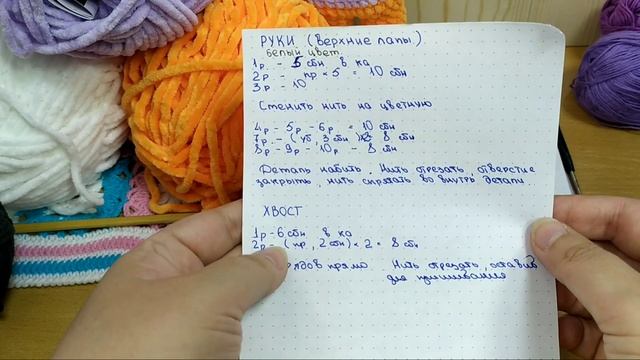 РУКИ (верхние лапы)
белый цвет
1р - 5 сбн в ка
2р - пр × 5 = 10 сбн
3р - 10
Сменить нить на цветную
4р - 5р - 6р = 10 сбн
7р - ( уб, 3 сбн ) 8 сбн
8р - 9р - 10р - 8 сбн
Деталь набить. Нить отрезать, отверстие
закрыть, нить спрятать во внутрь детали.
ХВОСТ
1р - 6 сбн в ка
2р - ( пр, 2 сбн) × 2 = 8 сбн
рядов прямо Нить отрезать, оставив
для пришивания